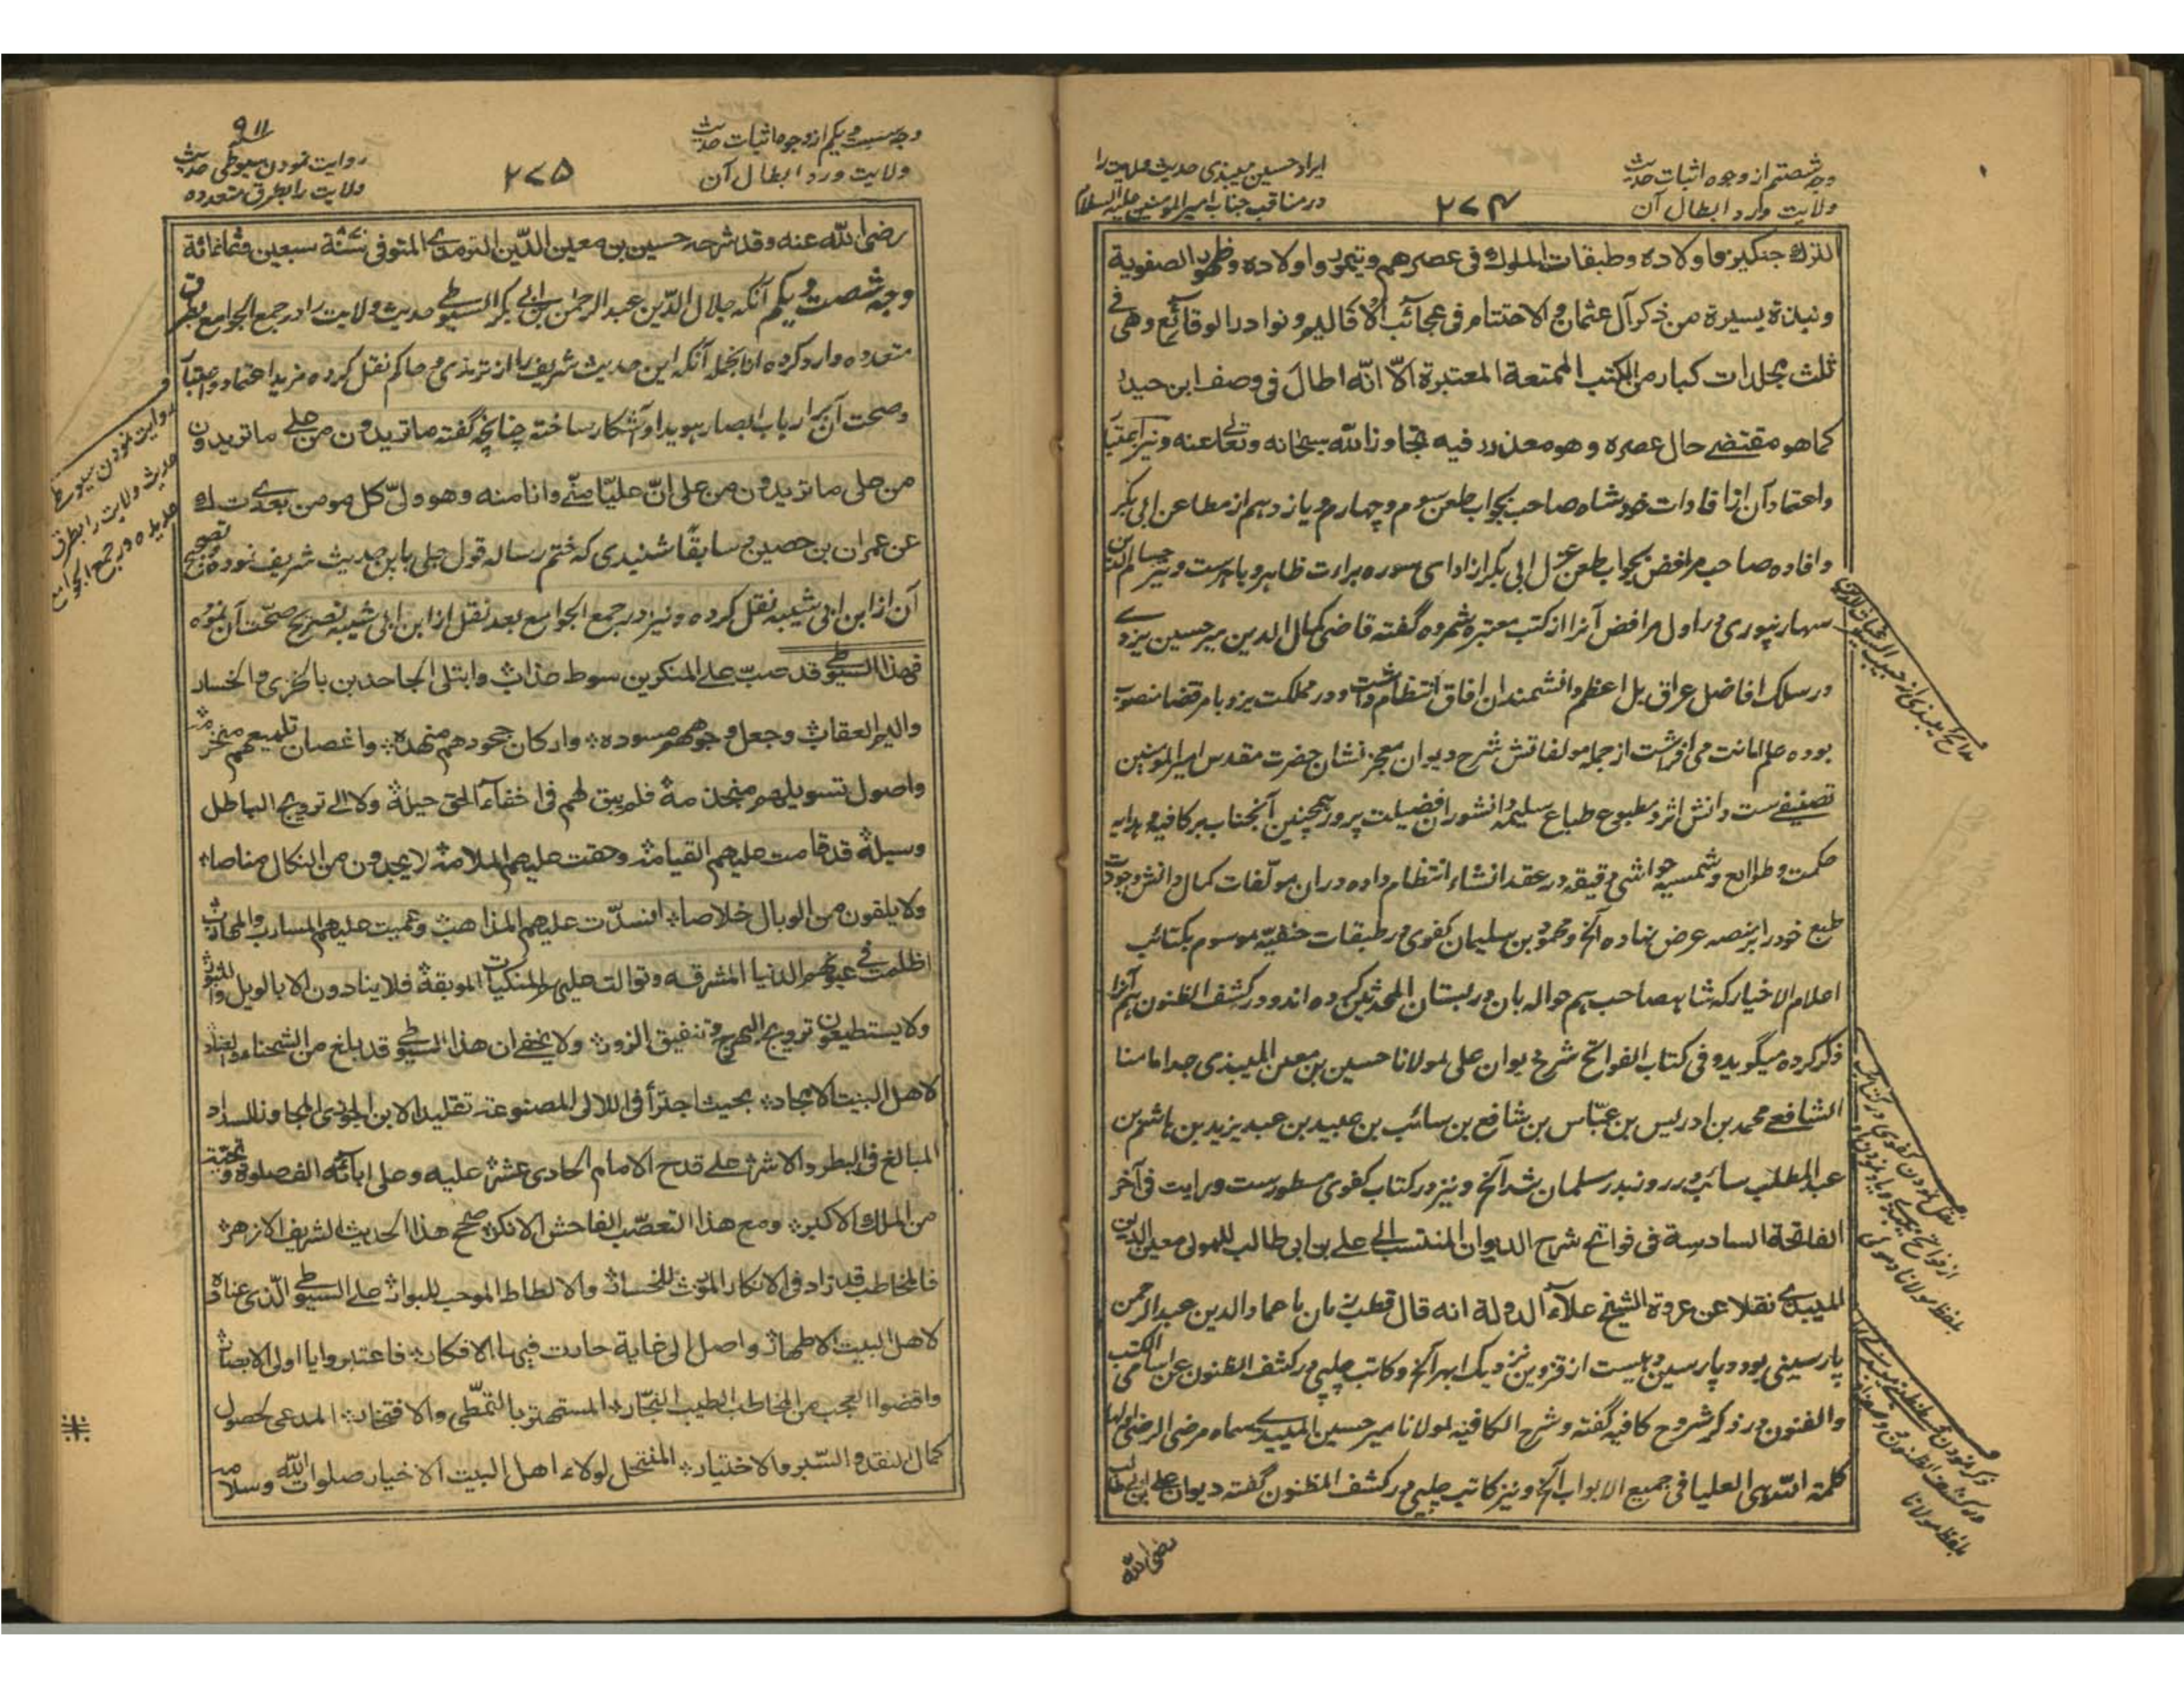 وجه شصتم از وجوه اثبات حدیث
ولایت ورد ابطال آن
۲۷۴
ایراد حسین میبذی حدیث ولایت را
در مناقب جناب امیر المومنین علیه السلام
الترك جنكيز واولاده وطبقات الملوك فى عصرهم وتيمور واولاده وظهور الصفوية
ونبذة يسيرة من ذكر آل عثمان والاختتام فى عجائب الاقاليم ونوادر الوقائع وهى فى
ثلث مجلدات كبار من الكتب الممتعة المعتبرة الّا انّه اطال فى وصف ابن حيدر
كما هو مقتضے حال عصره وهو معذور فيه تجاوز الله سبحانه وتعالى عنه ونیز اعتبار
واعتماد آن از افادات خود شاه صاحب بجواب طعن سوم وچهارم ویازدهم از مطاعن ابی بکر
وافاده صاحب مرافض بجواب طعن عزل ابی بکر از ادای سوره براءت ظاهر وباهرست ونیز حسام الدین
سهارنپوری در اول مرافض آنرا از کتب معتبره شمرده گفته قاضی کمال الدین میر حسین یزدے
در سلک افاضل عراق بل اعظم دانشمندان افاق انتظام داشت ودر مملکت یزد با مر قضا منصوب
بوده علم امانت می افراشت از جمله مولفاتش شرح دیوان معجز نشان حضرت مقدس امیر المومنین
تصنیفے ست دانش اثر ومطبوع طباع سلیمه دانشوران فضیلت پرور همچنین آنجناب بر کافیه وهدایه
حکمت وطوالع وشمسیه حواشی دقیقه در عقد انشاء انتظام داده دران مولّفات کمال دانش وجودت
طبع خود را بر منصه عرض نهاده الخ ومحمود بن سلیمان کفوی در طبقات حنفیّه موسوم بکتائب
اعلام الاخیار که شاهصاحب هم حواله بان در بستان المحدثین کرده اند ودر کشف الظنون هم آنرا
ذکر کرده میگوید وفى كتاب الفواتح شرح ديوان على لمولانا حسين بن معين الميبذى جد امامنا
الشافعے محمد بن ادريس بن عبّاس بن شافع بن سائب بن عبيد بن عبد يزيد بن هاشم بن
عبد المطلب سائب در روز بدر مسلمان شد الخ ونیز در کتاب کفوی مسطورست ورايت فى آخر
الفاتحة السادسة فى فواتح شرح الديوان المنتسب الى على بن ابى طالب للمولى معين الدين
الميبدے نقلا عن عروة الشيخ علاء الدولة انه قال قطب زمان ما عماد الدين عبد الرحمن
پارسینی بود وپارسین دهیست از قزوین نزدیک ابهر الخ وکاتب چلپی در کشف الظنون عن اسامی الکتب
والفنون در ذکر شروح کافیه گفته وشرح الكافيه لمولانا مير حسين الميبدے سماه مرضى الرضى
كلمة الله هى العليا فى جميع الابواب الخ ونیز کاتب چلپی در کشف الظنون گفته دیوان على بن ابى طالب
رضى الله
وجه شصت ویکم از وجوه اثبات حدیث
ولایت ورد ابطال آن
۲۷۵
۹۱۱
روایت نمودن سیوطی حدیث
ولایت را بطرق متعدده
رضى الله عنه وقد شرحه حسين بن معين الدّين الترمدے المتوفى سنة سبعين وثمانمائة
وجه شصت ویکم آنکه جلال الدّین عبد الرحمن بن ابى بكر السیوطے حدیث ولایت را در جمع الجوامع بطرق
متعدده وارد کرده از انجمله آنکه این حدیث شریف را از ترمذی وحاکم نقل کرده مزید اعتماد واعتبار
وصحت آن بر ارباب ابصار هویدا وآشکار ساخته چنانچه گفته ما تريدون من علے ما تريدون
من على ما تريدون من على انّ عليّا منّے وانا منه وهو ولىّ كل مومن بعدے ت ك
عن عمران بن حصین وسابقًا شنیدی که ختم رساله قول جلی باین حدیث شریف نموده تصحیح
آن از ابن ابی شیبه نقل کرده ونیز در جمع الجوامع بعد نقل از ابن ابی شیبه تصریح صحّت آن نموده
فهذا السيوطے قد صبّ على المنكرين سوط عذاب وابتلى الجاحدين بالخزى والخسار
واليم العقاب وجعل وجوههم مسودة واركان جحودهم منهدة واغصان تلميعهم
واصول تسويلهم منجذمة فلم يبق لهم فى اخفاء الحق حيلة ولا الے ترويج الباطل
وسيلة قد قامت عليهم القيامة وحقت عليهم الملامة لا يجدون من النكال مناصا
ولا يلقون من الوبال خلاصا انسدّت عليهم المذاهب وعميت عليهم المسارب
اظلمت فى عيونهم الدنيا المشرقه وتوالت عليهم المنكيات الموبقة فلا ينادون الا بالويل والثبور
ولا يستطيعون ترويج البهرج وتنفيق الزور ولا يخفے ان هذا السيوطے قد بلغ من الشحناء والعناد
لاهل البيت الامجاد بحيث اجترأ فى اللالى المصنوعة تقليدا لابن الجوزى المجاوز للسداد
المبالغ فى البطر والاشر على قدح الامام الحادى عشر عليه وعلى ابائه الف صلوة وتحية
من الملك الاكبر ومع هذا التعصّب الفاحش الانكر صحح هذا الحديث الشريف الازهر
فالمخاطب قد زاد فى الانكار المورث للخسار والالطاط الموجب للبوار على السيوطے الّذى عناده
لاهل البيت الاطهار واصل الى غاية حارت فيها الافكار فاعتبروا يا اولى الابصار
واقضوا العجب من المخاطب الطيب النجار المستهتر بالتمطّى والافتخار المدعى لحصول
كمال النقد والسّبر والاختيار المنتحل لولاء اهل البيت الاخيار صلوات الله وسلامه
روایت نمودن سیوطے
حدیث ولایت را بطرق
عدیده در جمع الجوامع